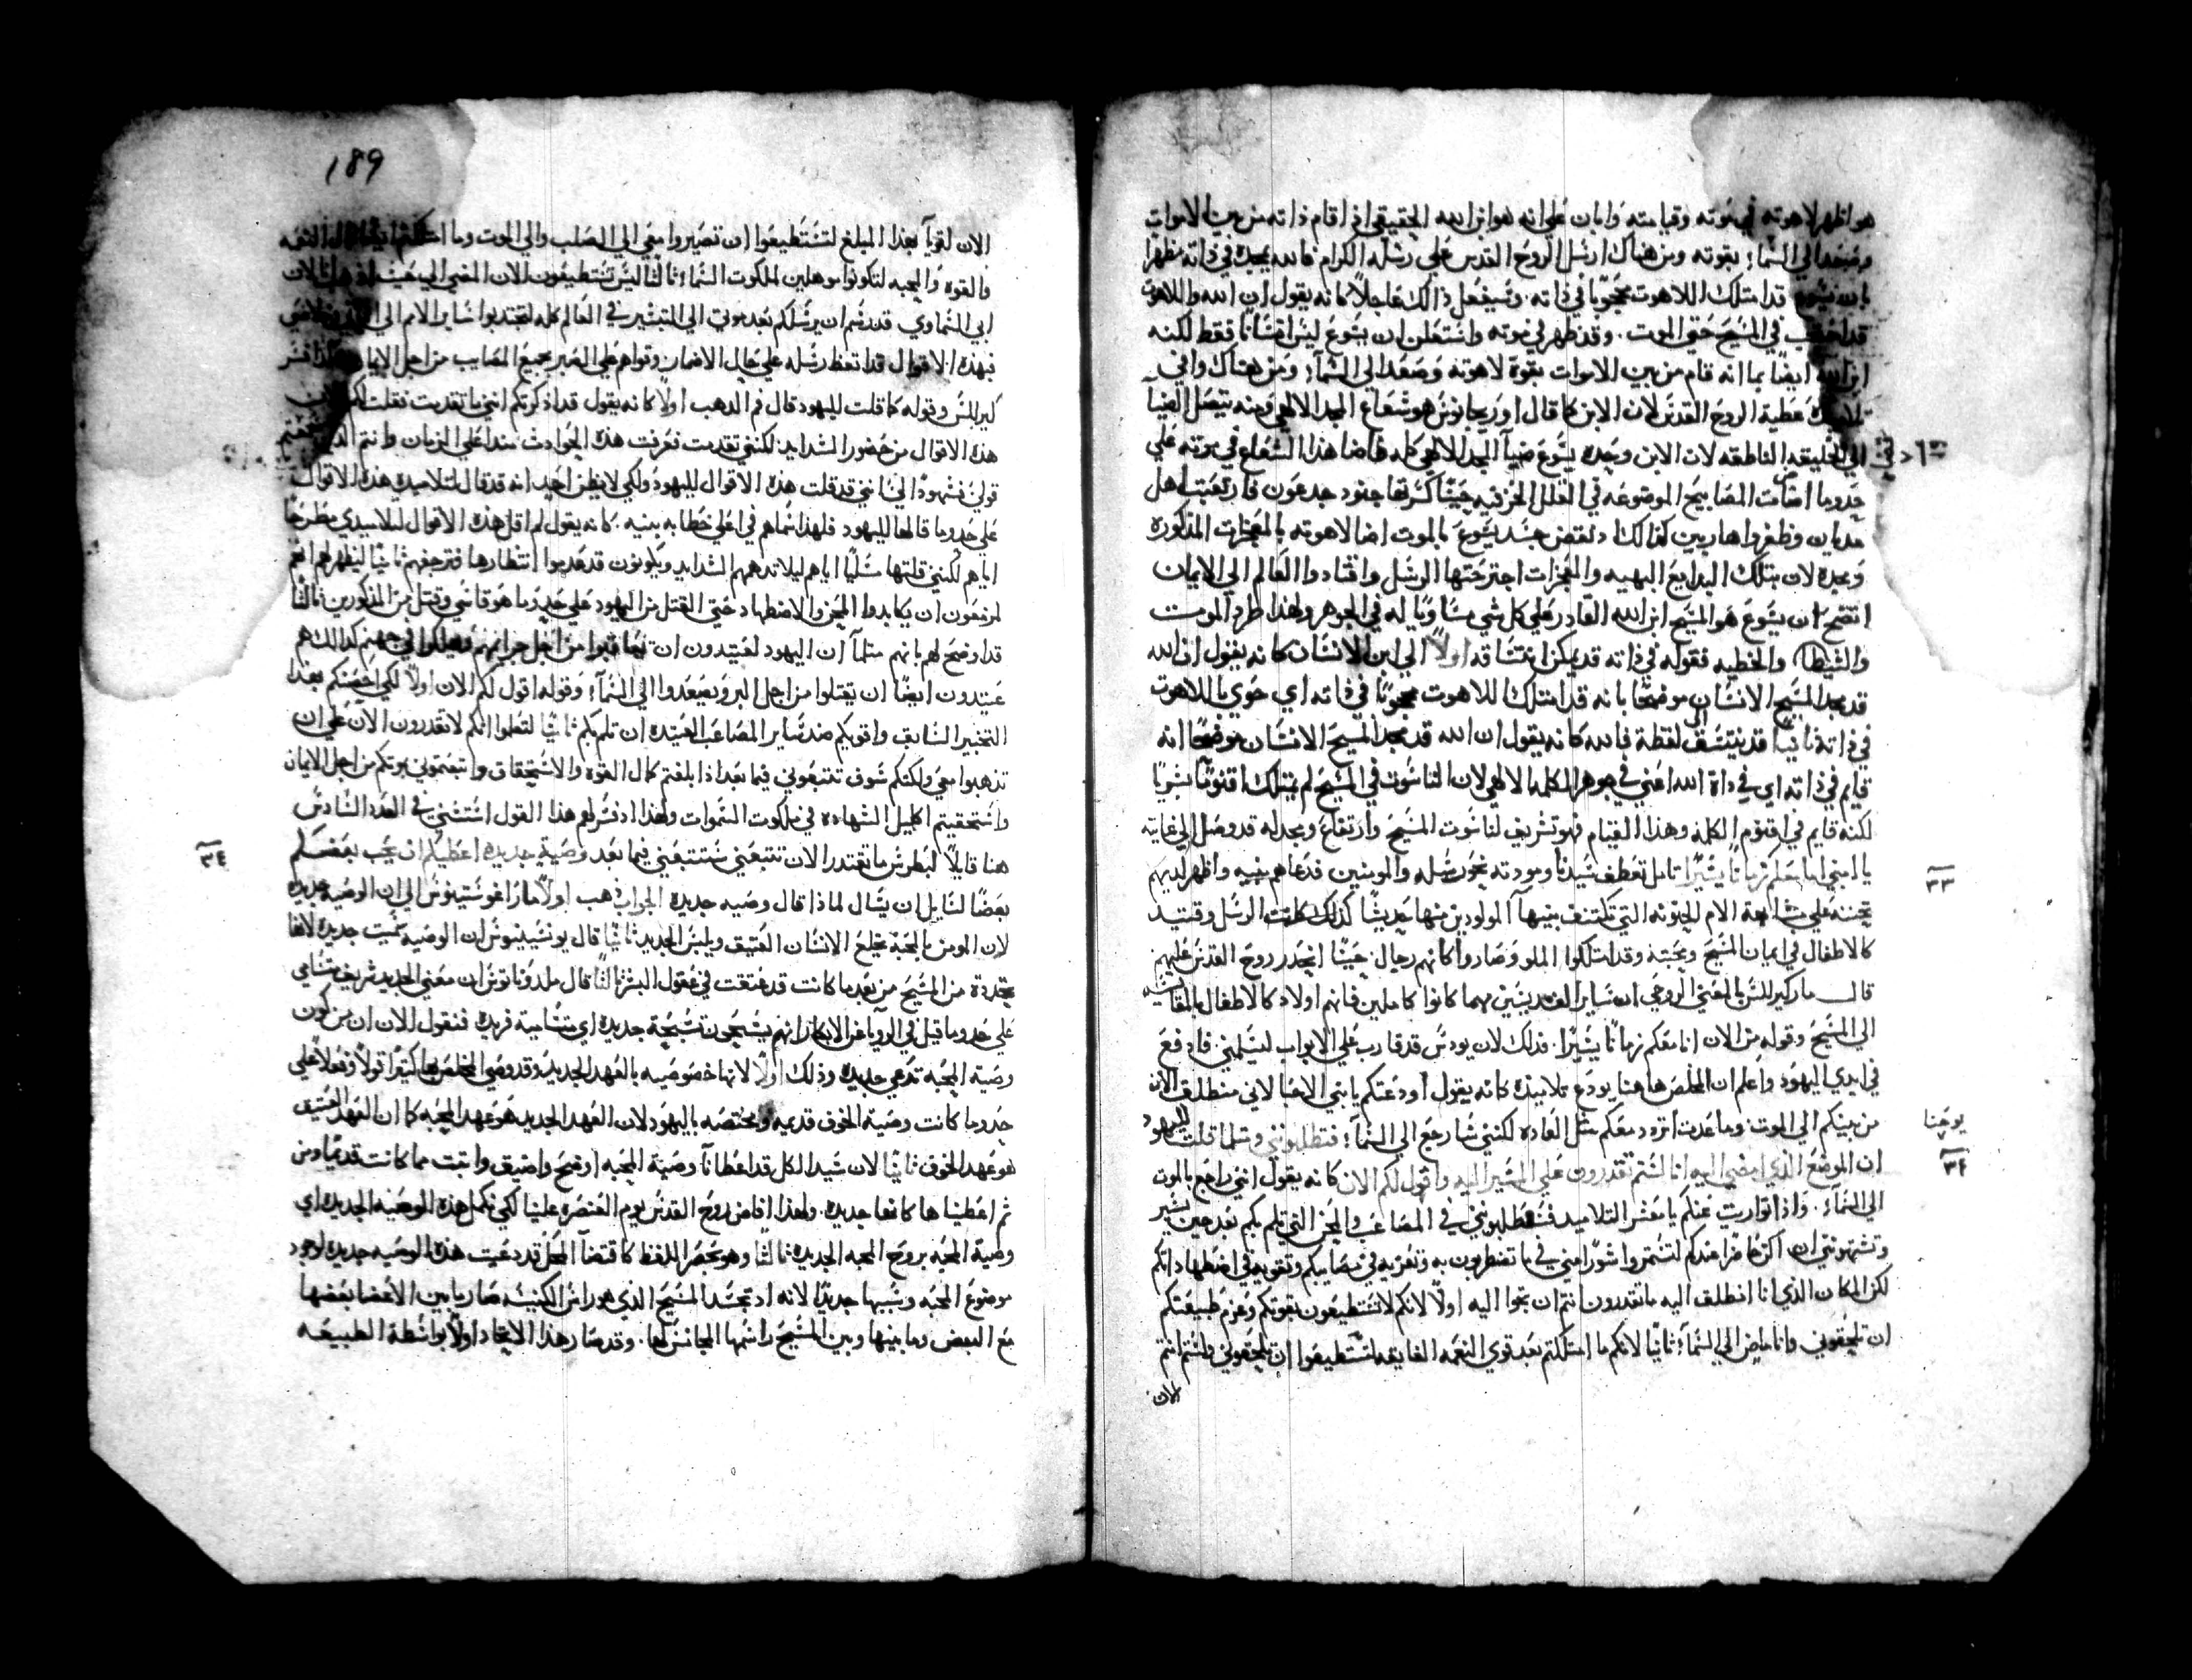 هو اظهر لاهوته في موته وقيامته وابان علي انه هو ابن الله الحقيقي اذ اقام ذاته من بين الاموات
وصعد الي السما؛ بقوته ومن هناك ارسل الروح القدس علي رسله الكرام فالله يمجده في ذاته مظهرًا
بان يسوع قد امتلك اللاهوت محجوبًا في ذاته. وسيفعل ذالك عاجلاً كانه يقول ان الله واللاهوت
قد في المسيح حتي الموت. وقد ظهر في موته واستعلن ان يسوع ليس انسانًا فقط لكنه
ابن الله ايضًا بما انه قام من بين الاموات بقوة لاهوته وصعد الي السمآ؛ ومن هناك وافي
تلاميذه عطية الروح القدس لان الابن كما قال اوريجانوس هو شعاع المجد الالهي ومنه يتصل الضيا
الي الخليقه الناطقه لان الابن وحده يسوع ضيآ المجد الالهي كله فاضا هذا الشعاع في موته علي
حدوما اضات المصابيح الموضوعه في القلل الخزفيه حينًا كسرتها جنود جدعون فارتعبت اهل
مديان وطفروا هاربين كذالك اذ نقض جسد يسوع بالموت اضا لاهوته بالمعجزات المذكوره
ومجده لان بتلك البدايع البهيه والمعجزات اجترحتها الرسل واقتادوا العالم الي الايمان
اتضح ان يسوع هو المسيح ابن الله القادر علي كل شي مساويًا له في الجوهر ولهذا طرد الموت
والشيطان والخطيه فقوله في ذاته قد يمكن انتساقه اولاً الي ابن الانسان كانه يقول ان الله
قد مجد المسيح الانسان موضحًا بانه قد امتلك اللاهوت محجوبًا في ذاته اي حوي باللاهوت
في ذاته ثانيًا قد ينتسق الي لفظة فالله كانه يقول ان الله قد مجد المسيح الانسان موضحًا انه
قايم في ذاته اي في ذاة الله اعني في جوهر الكلمه الالهي لان الناسوت في المسيح لم يمتلك اقنومًا بشريًا
لكنه قايم في اقنوم الكلمه وهذا القيام فهو تشريف لناسوت المسيح وارتفاع ومجد له قد وصل الي غايته
يا ابنيا انا معكم زمانًا يسيرًا تامل تعطف سيدنا ومودته نحو رسله والمومنين فدعاهم بنيه واظهر لديهم
تحننه علي مشابهة الام الحنونه التي تكتنف بنيها المولودين منها حديثًا كذلك كانت الرسل وقتيد
كالاطفال في ايمان المسيح ومحبته وقد امتلكوا الملو وصاروا كانهم رجال حينًا انحدر روح القدس عليهم
قال مار كيرللس بالمعني الروحي ان ساير القديسين مهما كانوا كاملين فانهم اولاد كالاطفال بالمقايسه
الي المسيح وقوله من الان انا معكم زمانًا يسيرًا. فذلك لان يودس قد قارب علي الابواب ليسلمني. فادفع
في ايدي اليهود واعلم ان المخلص هاهنا يودع تلاميذه كانه يقول اودعتكم يا بني الاحبا لاني منطلق الان
من بينكم الي الموت وما عدت اتردد معكم مثل العاده لكنني سارجع الي السمآ؛ فتطلبونني ومثلما قلت لليهود
ان الموضع الذي امضي اليه انا لستم تقدرون علي المسير اليه واقول لكم الان كانه يقول انني راجع بالموت
الي السمآء. واذا تواريت عنكم يا معشر التلاميد فتطلبونني في المصاعب والمحن التي تلم بكم بعد حين يسير
وتشتهونني ان اكون حاضرًا عندكم لتستمدوا مني في ما تفتطرون به وتعزيه في مصايبكم وتقويه في اضطهاداتكم
لكن المكان الذي انا انطلق اليه ما تقدرون انتم ان تجوا اليه اولاً لانكم لا تستطيعون بقوتكم وعزم طبيعتكم
ان تلحقوني وانا ماض الي السمآ؛ ثانيًا لانكم ما امتلكتم بعد قوي النعمه الفايقه لتستطيعوا ان تلحقوني ولستم انتم
الان
٣٣
يوحنا
٣٤
189
الان لقويآ بهذا المبلغ لتستطيعوا ان تصيروا معي الي الصلب والي الموت وما امتلكتم ايضًا النعمه
والقوه والمحبه لتكونوا موهلين لملكوت السما؛ ثالثًا ليس تستطيعون الان المضي الي حيث اذهب انا لان
ابي السماوي قد رسم ان يرسلكم بعد موتي الي التبشير في العالم كله لتجتدبوا ساير الامم الي
فبهذه الاقوال قد اتعظ رسله علي حال الاضمان وقواهم علي الصبر بجميع المصايب من اجل الايمان فسر
كيرللس وقوله كما قلت لليهود قال فم الدهب اولاً كانه يقول قد اذكرتكم انني ما تقدمت نقلت لكم
هذه الاقوال من حضور الشدايد لكنني تقدمت فعرفت هذه الحوادث منذ اعلي الزمان وانتم
قولي فشهود الي انني قد قلت هذه الاقوال لليهود ولكي لا يظن احد انه قد قال لتلاميده هذه الاقوال
علي حدوما قالها لليهود فلهذا سماهم في اعلي خطابه بنيه. كانه يقول لم اقل هذه الاقوال لتلاميدي مطرحًا
اياهم لكنني قلتها مسليًا اياهم ليلا تدهمهم الشدايد ويكونون قد عدموا انتظارها فترجفهم ثانيًا ليظهر لهم انهم
مزمعون ان يكابدوا المحن والاضطهاد حتي القتل من اليهود علي حدوما هو قاسي وقتل من المذكورين ثالثًا
قد اوضح لهم بانهم مثلمآ ان اليهود لعتيدون ان يعاقبوا من اجل جرايمهم ويهلكوا في جهنم كدالك هم
عتيدون ايضًا ان يقتلوا من اجل البر ويصعدوا الي السمآ؛ وقوله اقول لكم الان اولاً لكي احصنكم بهذا
التخبير السابق واقويكم ضد ساير المصاعب العتيده ان تلم بكم ثانيًا لتعلموا انكم لا تقدرون الان علي ان
تذهبوا معي ولكنكم سوف تتبعوني فيما بعد اذا بلغتم كمال القوه والاستحقاق واتبعتموني بموتكم من اجل الايمان
واستحقيتم اكليل الشهاده في ملكوت السموات ولهذا اذ فسر لهم هذا القول استثني في العدد السادس
هنا قايلاً لبطرس ما تقتدر الان تتبعني ستتبعني فيما بعد وصية جديده اعطيكم ان يحب بعضكم
بعضًا لسايل ان يسال لماذا قال وصيه جديده الجواب ذهب اولاً مار اغوستينوس الي ان الوصيه جديده
لان المومن بالمحبة يخلع الانسان العتيق ويلبس الجديد ثانيًا قال يونسينيوس ان الوصيه سميت جديده لانها
مجددة من المسيح من بعد ما كانت قد عتقت في عقول البشر ثالثًا قال ملدوناتوس ان معني الجديد شريف متسامي
علي حدوما قيل في الرويا عن الابكار انهم يسبحون تسبحة جديده اي متسامية فريده فنقول الان ان من كون
وصية المحبه تدعي جديده وذلك اولاً لانها خصوصيه بالعهد الجديد وقد وصي المخلص بها كثيرًا قولاً وفعلاً علي
حدوما كانت وصية الخوف قديمه ومختصه باليهود لان العهد الجديد هو عهد المحبه كما ان العهد العتيق
هو عهد الخوف ثانيًا لان سيد الكل قد اعطانا وصية المحبه اوضح واضيق واثبت مما كانت قديمًا ومن
ثم اعطيناها كانها جديده. ولهذا افاض روح القدس يوم العنصره علينا لكي نكمل هذه الوصيه الجديده اي
وصية المحبه بروح المحبه الجديده ثالثًا وهو بحصر اللفظ كاقتضآ المحل قد دعيت هذه الوصيه جديده لوجود
موضوع المحبه وسببها جديدًا لانه اذ تجسد المسيح الذي هو راس الكنيسه صار بما بين الاعضا بعضها
مع البعض وما بينها وبين المسيح راسها المجانس لها. وقد صار هذا الاتحاد اولاً بواسطة الطبيعه
٣٤